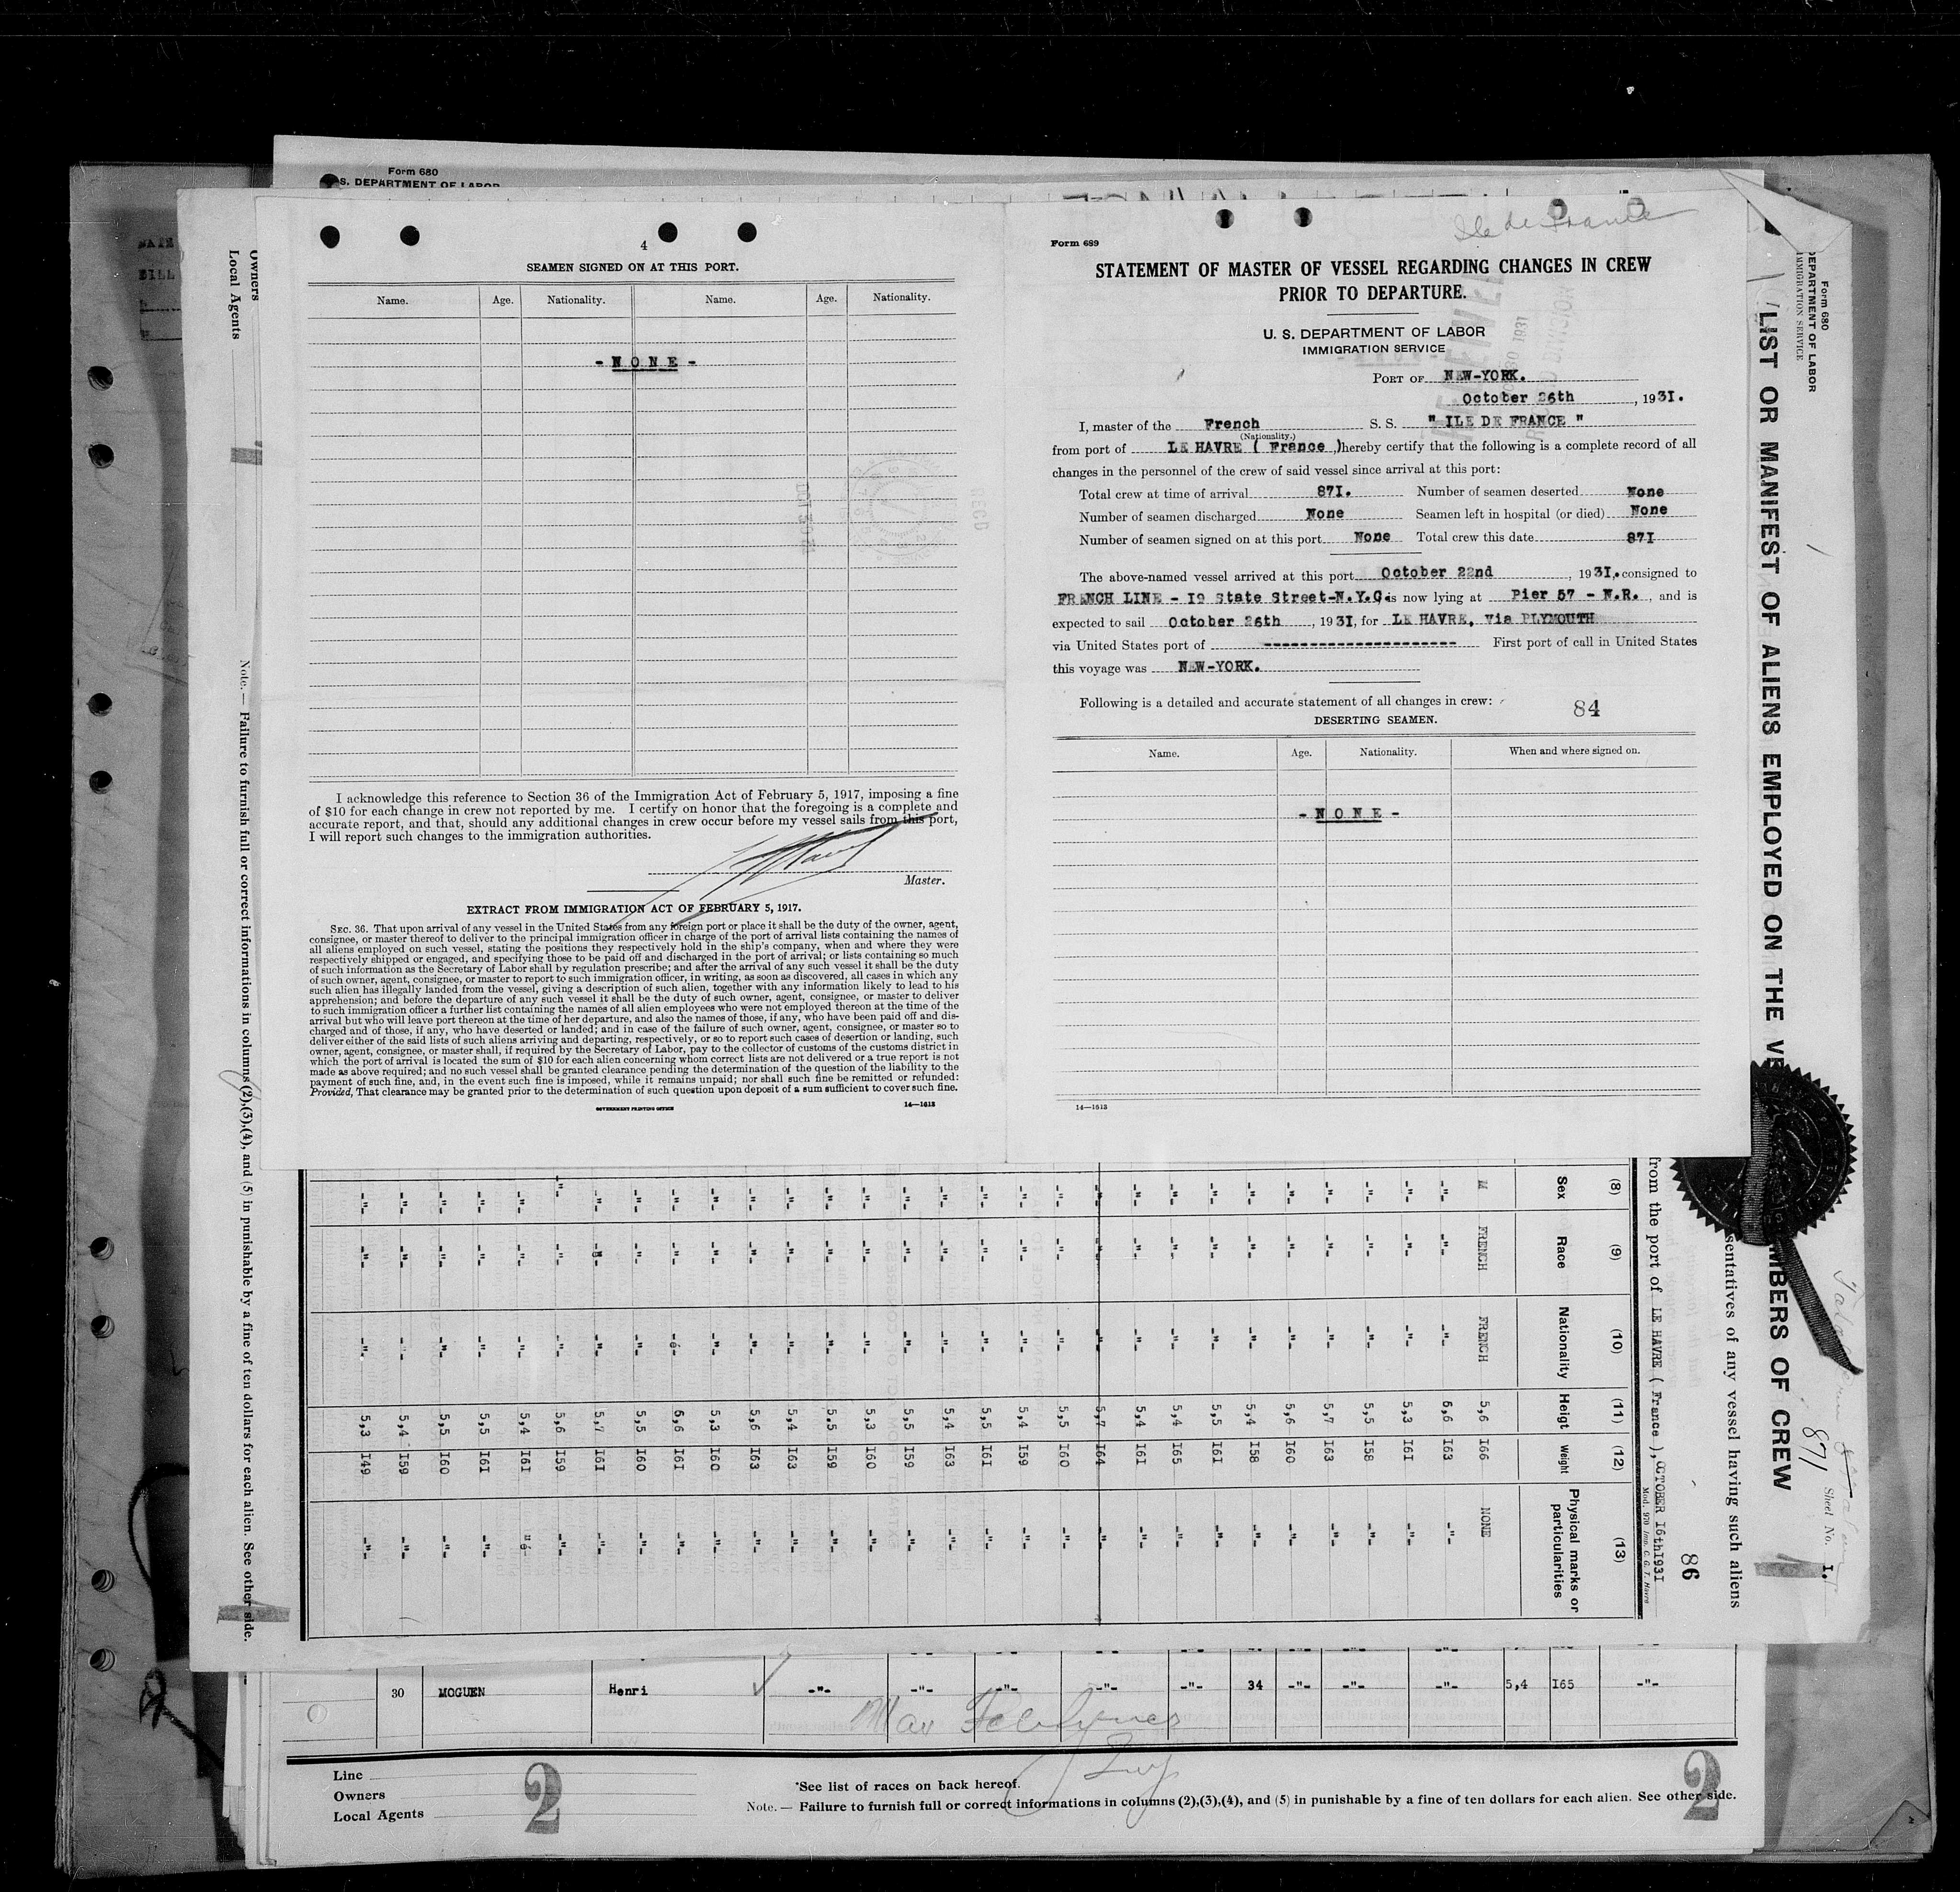 Form 680
S. DEPARTMENT OF LABOR
Owners
Local Agents
Note. — Failure to furnish full or correct informations in columns (2),(3),(4), and (5) in punishable by a fine of ten dollars for each alien. See other side.
4
SEAMEN SIGNED ON AT THIS PORT.
Name. Age. Nationality. Name. Age. Nationality.
- N O N E -
I acknowledge this reference to Section 36 of the Immigration Act of February 5, 1917, imposing a fine
of $10 for each change in crew not reported by me. I certify on honor that the foregoing is a complete and
accurate report, and that, should any additional changes in crew occur before my vessel sails from this port,
I will report such changes to the immigration authorities.
Master.
EXTRACT FROM IMMIGRATION ACT OF FEBRUARY 5, 1917.
SEC. 36. That upon arrival of any vessel in the United States from any foreign port or place it shall be the duty of the owner, agent,
consignee, or master thereof to deliver to the principal immigration officer in charge of the port of arrival lists containing the names of
all aliens employed on such vessel, stating the positions they respectively hold in the ship's company, when and where they were
respectively shipped or engaged, and specifying those to be paid off and discharged in the port of arrival; or lists containing so much
of such information as the Secretary of Labor shall by regulation prescribe; and after the arrival of any such vessel it shall be the duty
of such owner, agent, consignee, or master to report to such immigration officer, in writing, as soon as discovered, all cases in which any
such alien has illegally landed from the vessel, giving a description of such alien, together with any information likely to lead to his
apprehension; and before the departure of any such vessel it shall be the duty of such owner, agent, consignee, or master to deliver
to such immigration officer a further list containing the names of all alien employees who were not employed thereon at the time of the
arrival but who will leave port thereon at the time of her departure, and also the names of those, if any, who have been paid off and dis-
charged and of those, if any, who have deserted or landed; and in case of the failure of such owner, agent, consignee, or master so to
deliver either of the said lists of such aliens arriving and departing, respectively, or so to report such cases of desertion or landing, such
owner, agent, consignee, or master shall, if required by the Secretary of Labor, pay to the collector of customs of the customs district in
which the port of arrival is located the sum of $10 for each alien concerning whom correct lists are not delivered or a true report is not
made as above required; and no such vessel shall be granted clearance pending the determination of the question of the liability to the
payment of such fine, and, in the event such fine is imposed, while it remains unpaid; nor shall such fine be remitted or refunded:
Provided, That clearance may be granted prior to the determination of such question upon deposit of a sum sufficient to cover such fine.
GOVERNMENT PRINTING OFFICE 14—1613
Ile de France
Form 689
STATEMENT OF MASTER OF VESSEL REGARDING CHANGES IN CREW
PRIOR TO DEPARTURE.
U. S. DEPARTMENT OF LABOR
IMMIGRATION SERVICE
PORT OF NEW-YORK.
October 26th, 1931.
I, master of the French S. S. " ILE DE FRANCE "
(Nationality.)
from port of LE HAVRE ( France ) hereby certify that the following is a complete record of all
changes in the personnel of the crew of said vessel since arrival at this port:
Total crew at time of arrival 87I. Number of seamen deserted None
Number of seamen discharged None Seamen left in hospital (or died) None
Number of seamen signed on at this port None Total crew this date 87I
The above-named vessel arrived at this port October 22nd, 1931, consigned to
FRENCH LINE - I9 State Street-N.Y.C. is now lying at Pier 57 - N.R., and is
expected to sail October 26th, 1931, for LE HAVRE, Via PLYMOUTH
via United States port of -------------------- First port of call in United States
this voyage was NEW-YORK.
Following is a detailed and accurate statement of all changes in crew:
84
DESERTING SEAMEN.
Name. Age. Nationality. When and where signed on.
- N O N E -
14—1613
Form 680
DEPARTMENT OF LABOR
IMMIGRATION SERVICE
LIST OR MANIFEST OF ALIENS EMPLOYED ON THE VE
MBERS OF CREW
871
Sheet No. I.
sentatives of any vessel having such aliens
86
from the port of LE HAVRE ( France ), OCTOBER I6thI93I
Mod. 970 Imp. C. G. T. Havre
(8) (9) (10) (11) (12) (13)
Sex Race Nationality Heigt Weight Physical marks or particularities
M FRENCH FRENCH 5,6 I66 NONE
-"- -"- -"- 5,6 I63 -"-
-"- -"- -"- 5,3 I61 -"-
-"- -"- -"- 5,5 I58 -"-
-"- -"- -"- 5,7 I63 -"-
-"- -"- -"- 5,6 I60 -"-
-"- -"- -"- 5,4 I58 -"-
-"- -"- -"- 5,5 I6I -"-
-"- -"- -"- 5,4 I65 -"-
-"- -"- -"- 5,4 I6I -"-
-"- -"- -"- 5,7 I64 -"-
-"- -"- -"- 5,5 I60 -"-
-"- -"- -"- 5,4 I59 -"-
-"- -"- -"- 5,5 I6I -"-
-"- -"- -"- 5,4 I63 -"-
-"- -"- -"- 5,5 I59 -"-
-"- -"- -"- 5,3 I60 -"-
-"- -"- -"- 5.5 I59 -"-
-"- -"- -"- 5,4 I63 -"-
-"- -"- -"- 5,6 I63 -"-
-"- -"- -"- 5,3 I60 -"-
-"- -"- -"- 5,6 I6I -"-
-"- -"- -"- 5,5 I60 -"-
-"- -"- -"- 5,7 I6I -"-
-"- -"- -"- 5,6 I59 -"-
-"- -"- -"- 5,4 I6I -"-
-"- -"- -"- 5,5 I6I -"-
-"- -"- -"- 5,5 I60 -"-
-"- -"- -"- 5,4 I59 -"-
-"- -"- -"- 5,3 I49 -"-
30 MOGUEN Henri -"- -"- -"- -"- -"- 34 -"- -"- -"- 5,4 I65 -"-
Line
Owners
Local Agents
2
*See list of races on back hereof.
Note. — Failure to furnish full or correct informations in columns (2),(3),(4), and (5) in punishable by a fine of ten dollars for each alien. See other side.
2